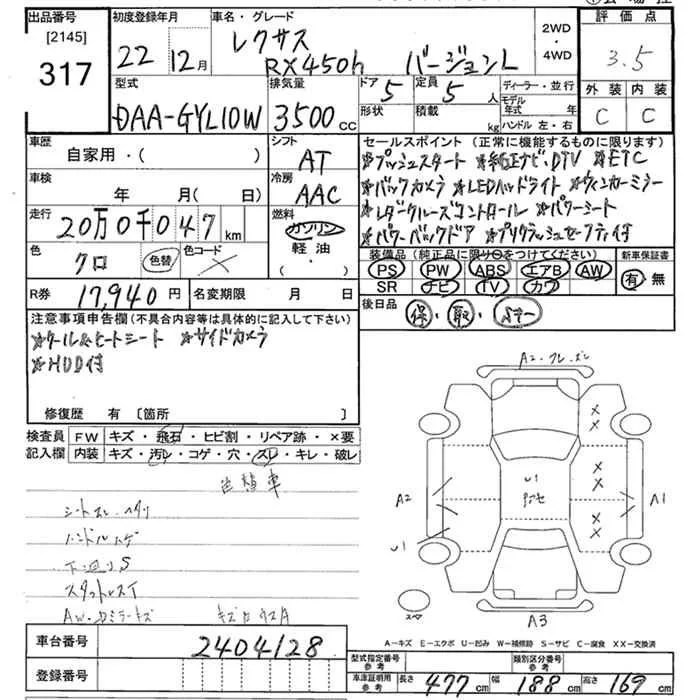 出品番号
[2145]
317
初度登録年月
22 12月
車名・グレード
レクサス
RX450h バージョンL
2WD
・
4WD
評価点
3.5
外装 内装
C C
型式
DAA-GYL10W
排気量
3500 cc
ドア 5
形状
定員 5 人
積載 kg
ディーラー・並行
モデル年式 年
ハンドル 左・右
車歴
自家用・( )
シフト
AT
車検
年 月( 日)
冷房
AAC
走行
20万0千047 km
燃料
ガソリン
軽油
・( )
色
クロ 色替
色コード
×
R券 17,940円
名変期限 月 日
セールスポイント(正常に機能するものに限ります)
★プッシュスタート ★純正ナビ、DTV ★ETC
★バックカメラ ★LEDヘッドライト ★ウィンカーミラー
★レダークルーズコントロール ★パワーシート
★パワーバックドア ★プリクラッシュセーフティ付
装備品(純正品に限り○をつけてください)
PS PW ABS エアB AW
SR ナビ TV カワ
新車保証書
有・無
後日品 保・取・
注意事項申告欄(不具合内容等は具体的に記入して下さい)
★クール&ヒートシート ★サイドカメラ
★HUD付
修復歴 有 [箇所 ]
検査員記入欄
FW キズ・飛石・ヒビ割・リペア跡・×要
内装 キズ・汚レ・コゲ・穴・スレ・キレ・破レ
色替車
シートスレ・ヘタリ
ハンドルハゲ
下廻りS
スタットレスT
AW・Dミラーキズ
A2・
A2
U1
U1
A1
A3
スペア
A-キズ E-エクボ U-凹み W-補修跡 S-サビ C-腐食 XX-交換済
車台番号 2404128
登録番号
型式指定番号 参考
類別区分番号 参考
車庫証明用 参考
長さ 477cm 幅 188cm 高さ 169cm